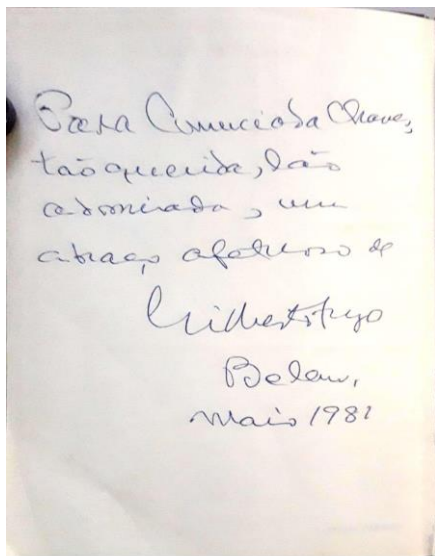 Para Annunciada Chaves,
tão querida, tão
admirada, um
abraço afetuoso de
Gilberto Freyre
Belem,
maio 1981